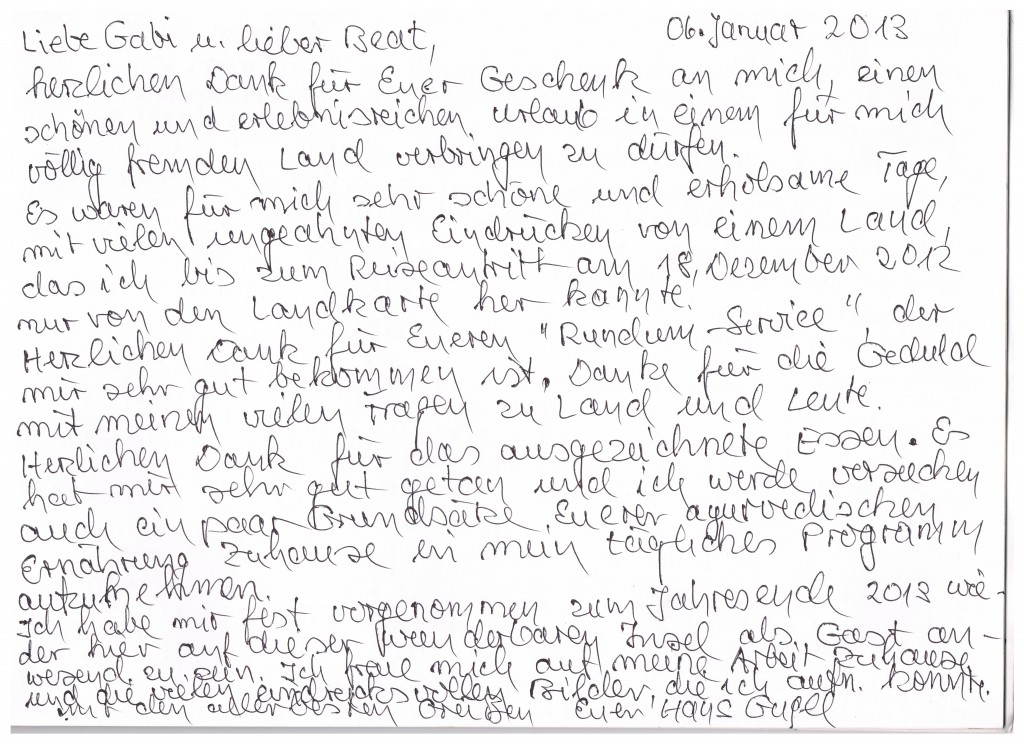 06. Januar 2013
Liebe Gabi u. lieber Beat,
herzlichen Dank für Euer Geschenk an mich, einen
schönen und erlebnisreichen Urlaub in einem für mich
völlig fremden Land verbringen zu dürfen.
Es waren für mich sehr schöne und erholsame Tage,
mit vielen ungeahnten Eindrücken von einem Land,
das ich bis zum Reiseantritt am 18. Dezember 2012
nur von den Landkarte her kannte.
Herzlichen Dank für Eueren "Rundum-Service", der
mir sehr gut bekommen ist. Danke für die Geduld
mit meinen vielen Fragen zu Land und Leute.
Herzlichen Dank für das ausgezeichnete Essen. Es
hat mir sehr gut getan und ich werde versuchen
auch ein paar Grundsätze Euerer ayurvedischen
Ernährung zuhause in mein tägliches Programm
aufzunehmen.
Ich habe mir fest vorgenommen zum Jahresende 2013 wie-
der hier auf dieser wunderbaren Insel als Gast an-
wesend zu sein. Ich freue mich auf meine Arbeit zuhause
und die vielen eindrucksvollen Bilder, die ich aufn. konnte.
Mit den allerbesten Grüßen Euer Hans